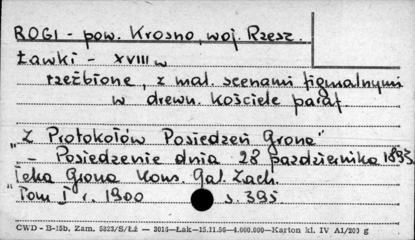 ROGI - pow. Krosno, woj. Rzesz.
Ławki - XVIII w
rzeźbione, z mal. scenami figuralnymi
w drewn. kościele paraf
"Z Protokołów Posiedzeń Grona"
- Posiedzenie dnia 28 października 1893
Teka Grona Kons. Gal. Zach.
"Tom I r. 1900 s. 395
CWD - B-15b, Zam. 5823/S/Łż - 3016-Łak-15.11.56-4.000.000-Karton kl. IV A1/200 g